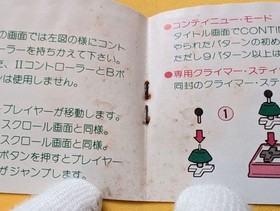 の画面では左図の様にコント
ーラーを持ちかえて下さい。
、IIコントローラーとBボ
ンは使用しません。
プレイヤーが移動します。
スクロール画面と同様。
スクロール画面と同様。
ボタンを押すとプレイヤー
がジャンプします。
●コンティニュー・モード
タイトル画面でCONTI
やられたパターンの初め
ただし9パターン以上は
●専用クライマー・スティ
同封のクライマー・ステ
①